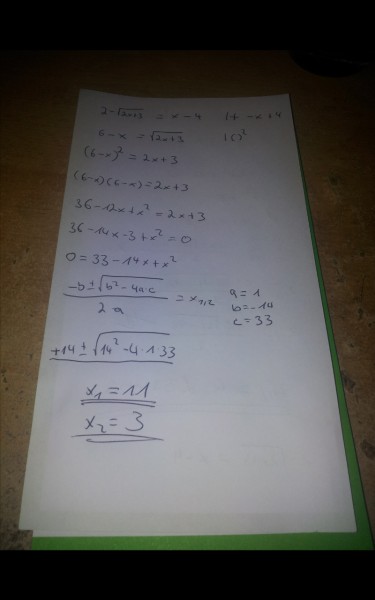 2-√2x+3 = x-4 |+ -x+4
6-x = √2x+3 |()²
(6-x)² = 2x+3
(6-x)(6-x)=2x+3
36-12x+x² = 2x+3
36-14x-3+x² = 0
0=33-14x+x²
-b±√b²-4a·c / 2a = x₁,₂ a=1 b=-14 c=33
+14±√14²-4·1·33
x₁=11
x₂=3